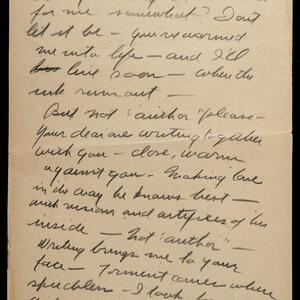 for me somewhat? Don't
let it be – you've warmed
me into life – and I'll
live soon – when the
ink runs out –
But not "author" please –
Your dear one writing together
with you – close, warm
against you – Making love
in the way he knows best –
with visions and artifices of his
inside – Not "author" –
Writing brings me to your
face – Torment comes where
speechless – I look